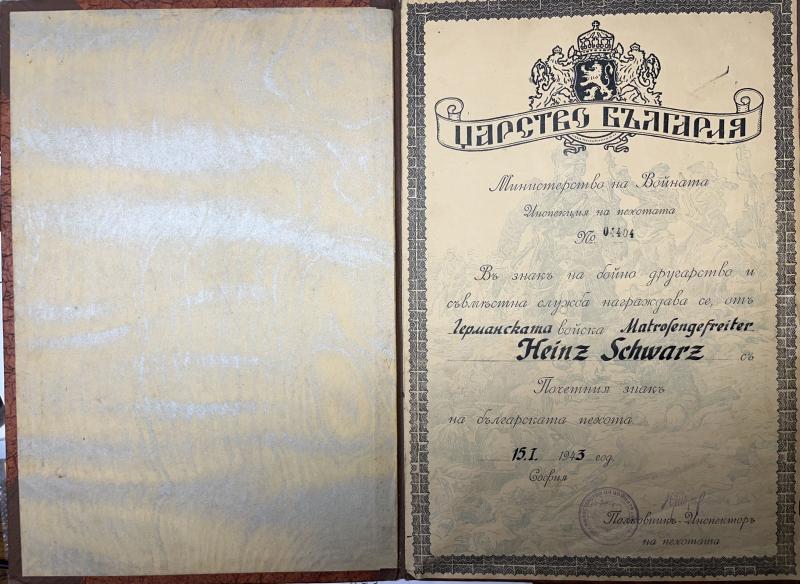 ЦАРСТВО БЪЛГАРИЯ
Министерство на Войната
Инспекция на пехотата
№ 04404
Въ знакъ на бойно другарство и
съвмѣстна служба награждава се, отъ
Германската войска Matrosengefreiter
Heinz Schwarz съ
Почетния знакъ
на българската пехота
15.I. 1943 год.
София
Полковникъ-Инспекторъ
на пехотата